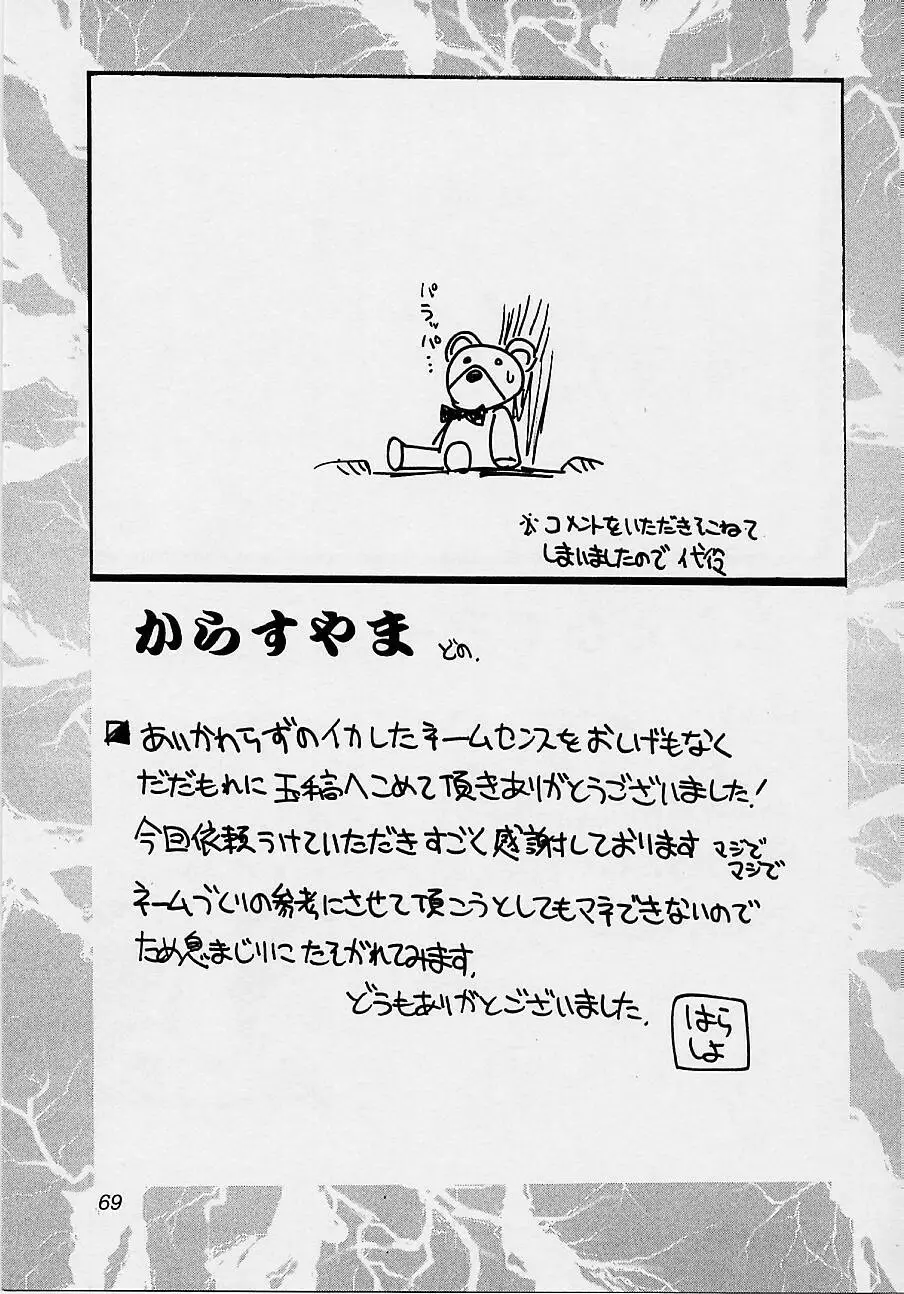 パラッパ…
※コメントをいただきそこねて
しまいましたので代役
からすやま どの.
あいかわらずのイカしたネームセンスをおしげもなく
だだもれに玉稿へこめて頂きありがとうございました!
今回依頼うけていただきすごく感謝しております マジで
マジで
ネームづくりの参考にさせて頂こうとしてもマネできないので
ため息まじりにたそがれてみます.
どうもありがとございました.
はら
しよ
69